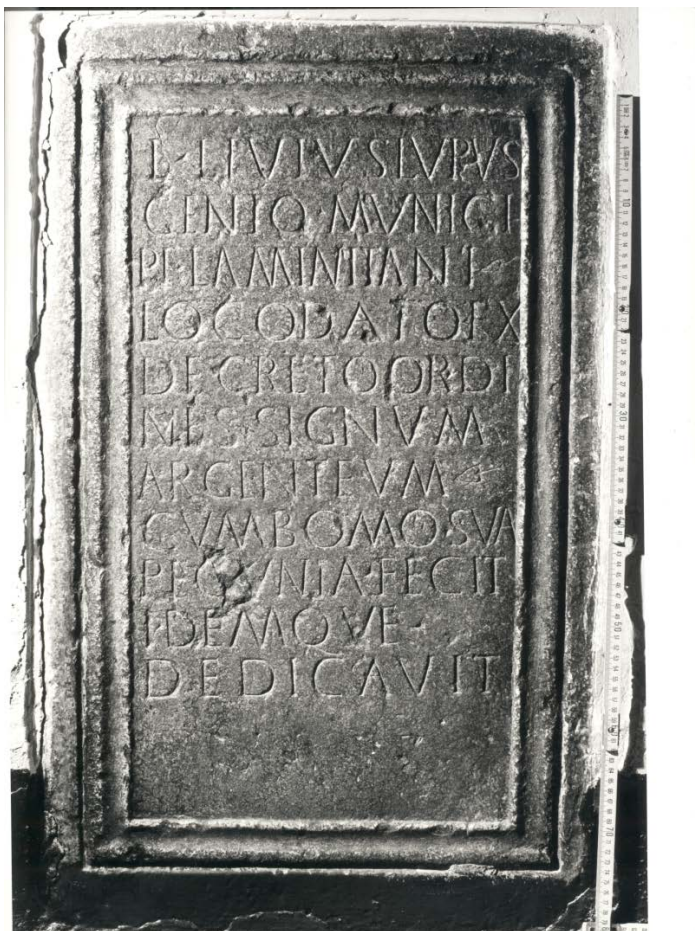 L·LIVIVS LVPVS
GENIO·MVNICI
PI LAMINITANI
LOCO DATO EX
DECRETO ORDI
NIS·SIGNVM
ARGENTEVM
CVM DOMO·SVA
PECVNIA·FECIT
IDEMQVE
DEDICAVIT